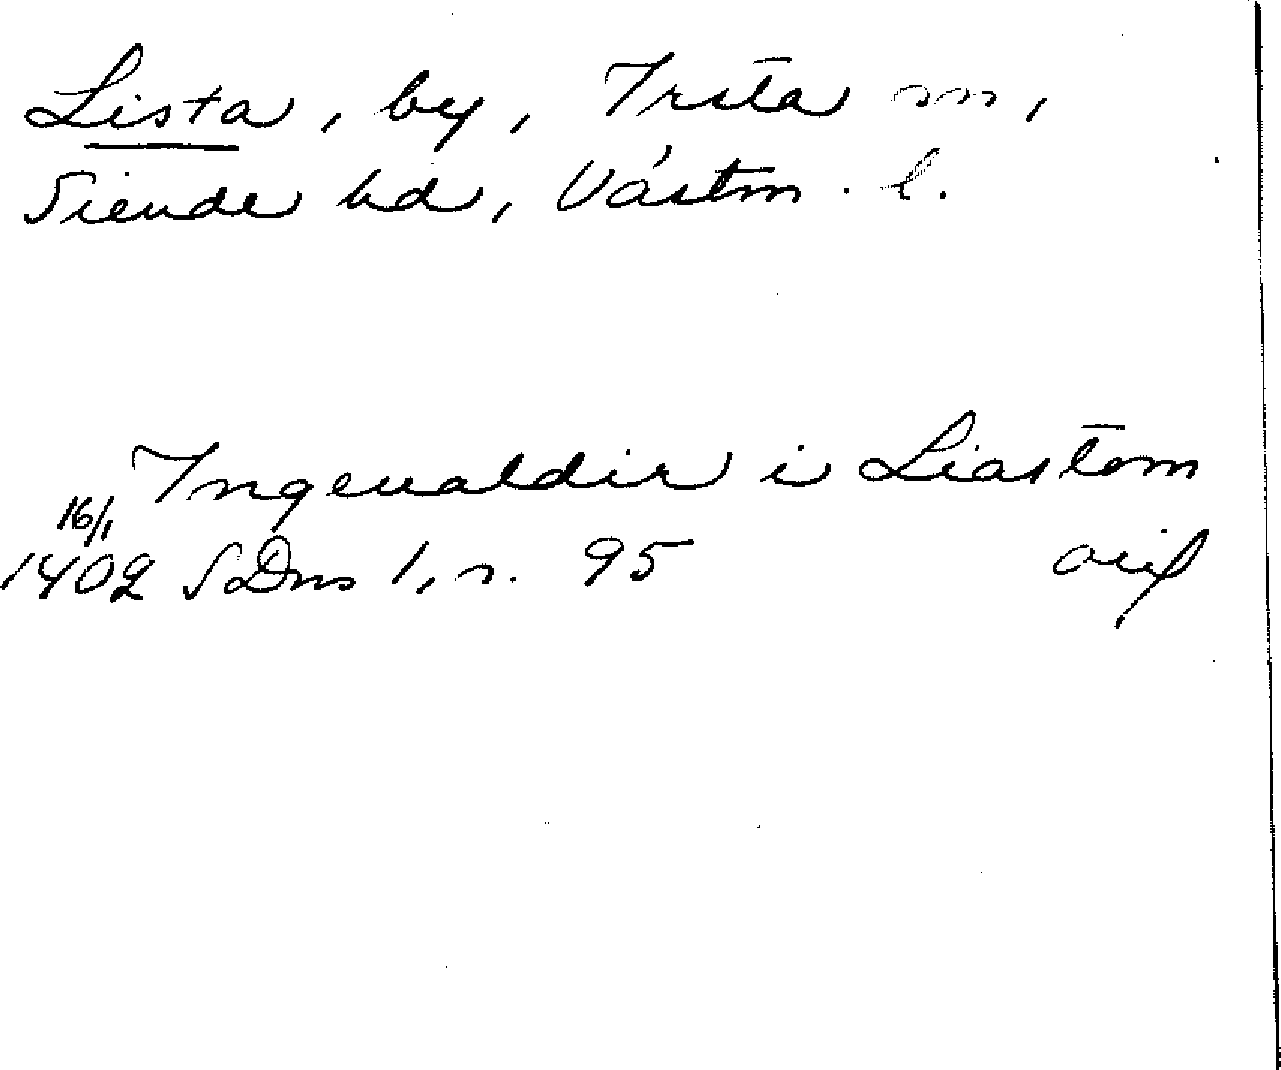 Lista, by, Irsta sn,
Siende hd, Västm. l.
Ingeualdir i Liastom
16/1
1402 SDns 1, s. 95 orig